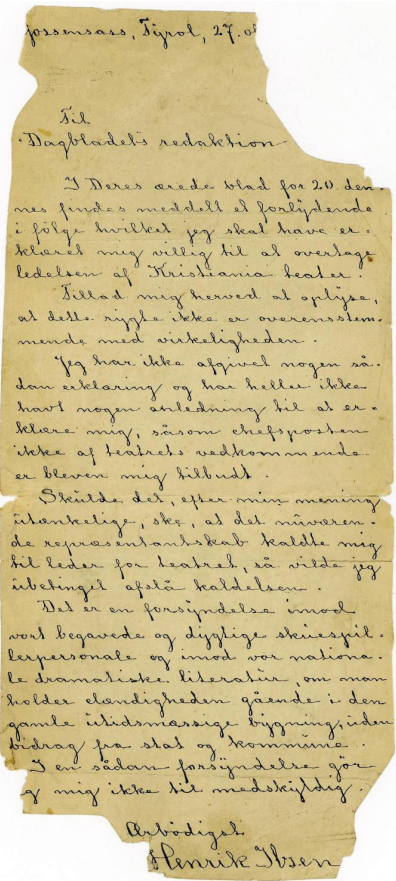 Gossensass, Tyrol, 27. ok
Til
Dagbladets redaktion
I Deres ærede blad for 20 den-
nes findes meddelt et forlydende
i følge hvilket jeg skal have er-
klæret mig villig til at overtage
ledelsen af Kristiania teater.
Tillad mig herved at oplyse,
at dette rygte ikke er overensstem-
mende med virkeligheden.
Jeg har ikke afgivet nogen så-
dan erklæring og har heller ikke
havt nogen anledning til at er-
klære mig, såsom chefsposten
ikke af teatrets vedkommende
er bleven mig tilbudt.
Skulde det, efter min mening
utænkelige, ske, at det nuværen-
de repræsentantskab kaldte mig
til leder for teatret, så vilde jeg
ubetinget afslå kaldelsen.
Det er en forsyndelse imod
vort begavede og dygtige skuespil-
lerpersonale og imod vor nationa-
le dramatiske literatur, om man
holder elendigheden gående i den
gamle utidsmæssige bygning, uden
bidrag fra stat og kommune.
I en sådan forsyndelse gør
g mig ikke til medskyldig.
Ærbødigst
Henrik Ibsen